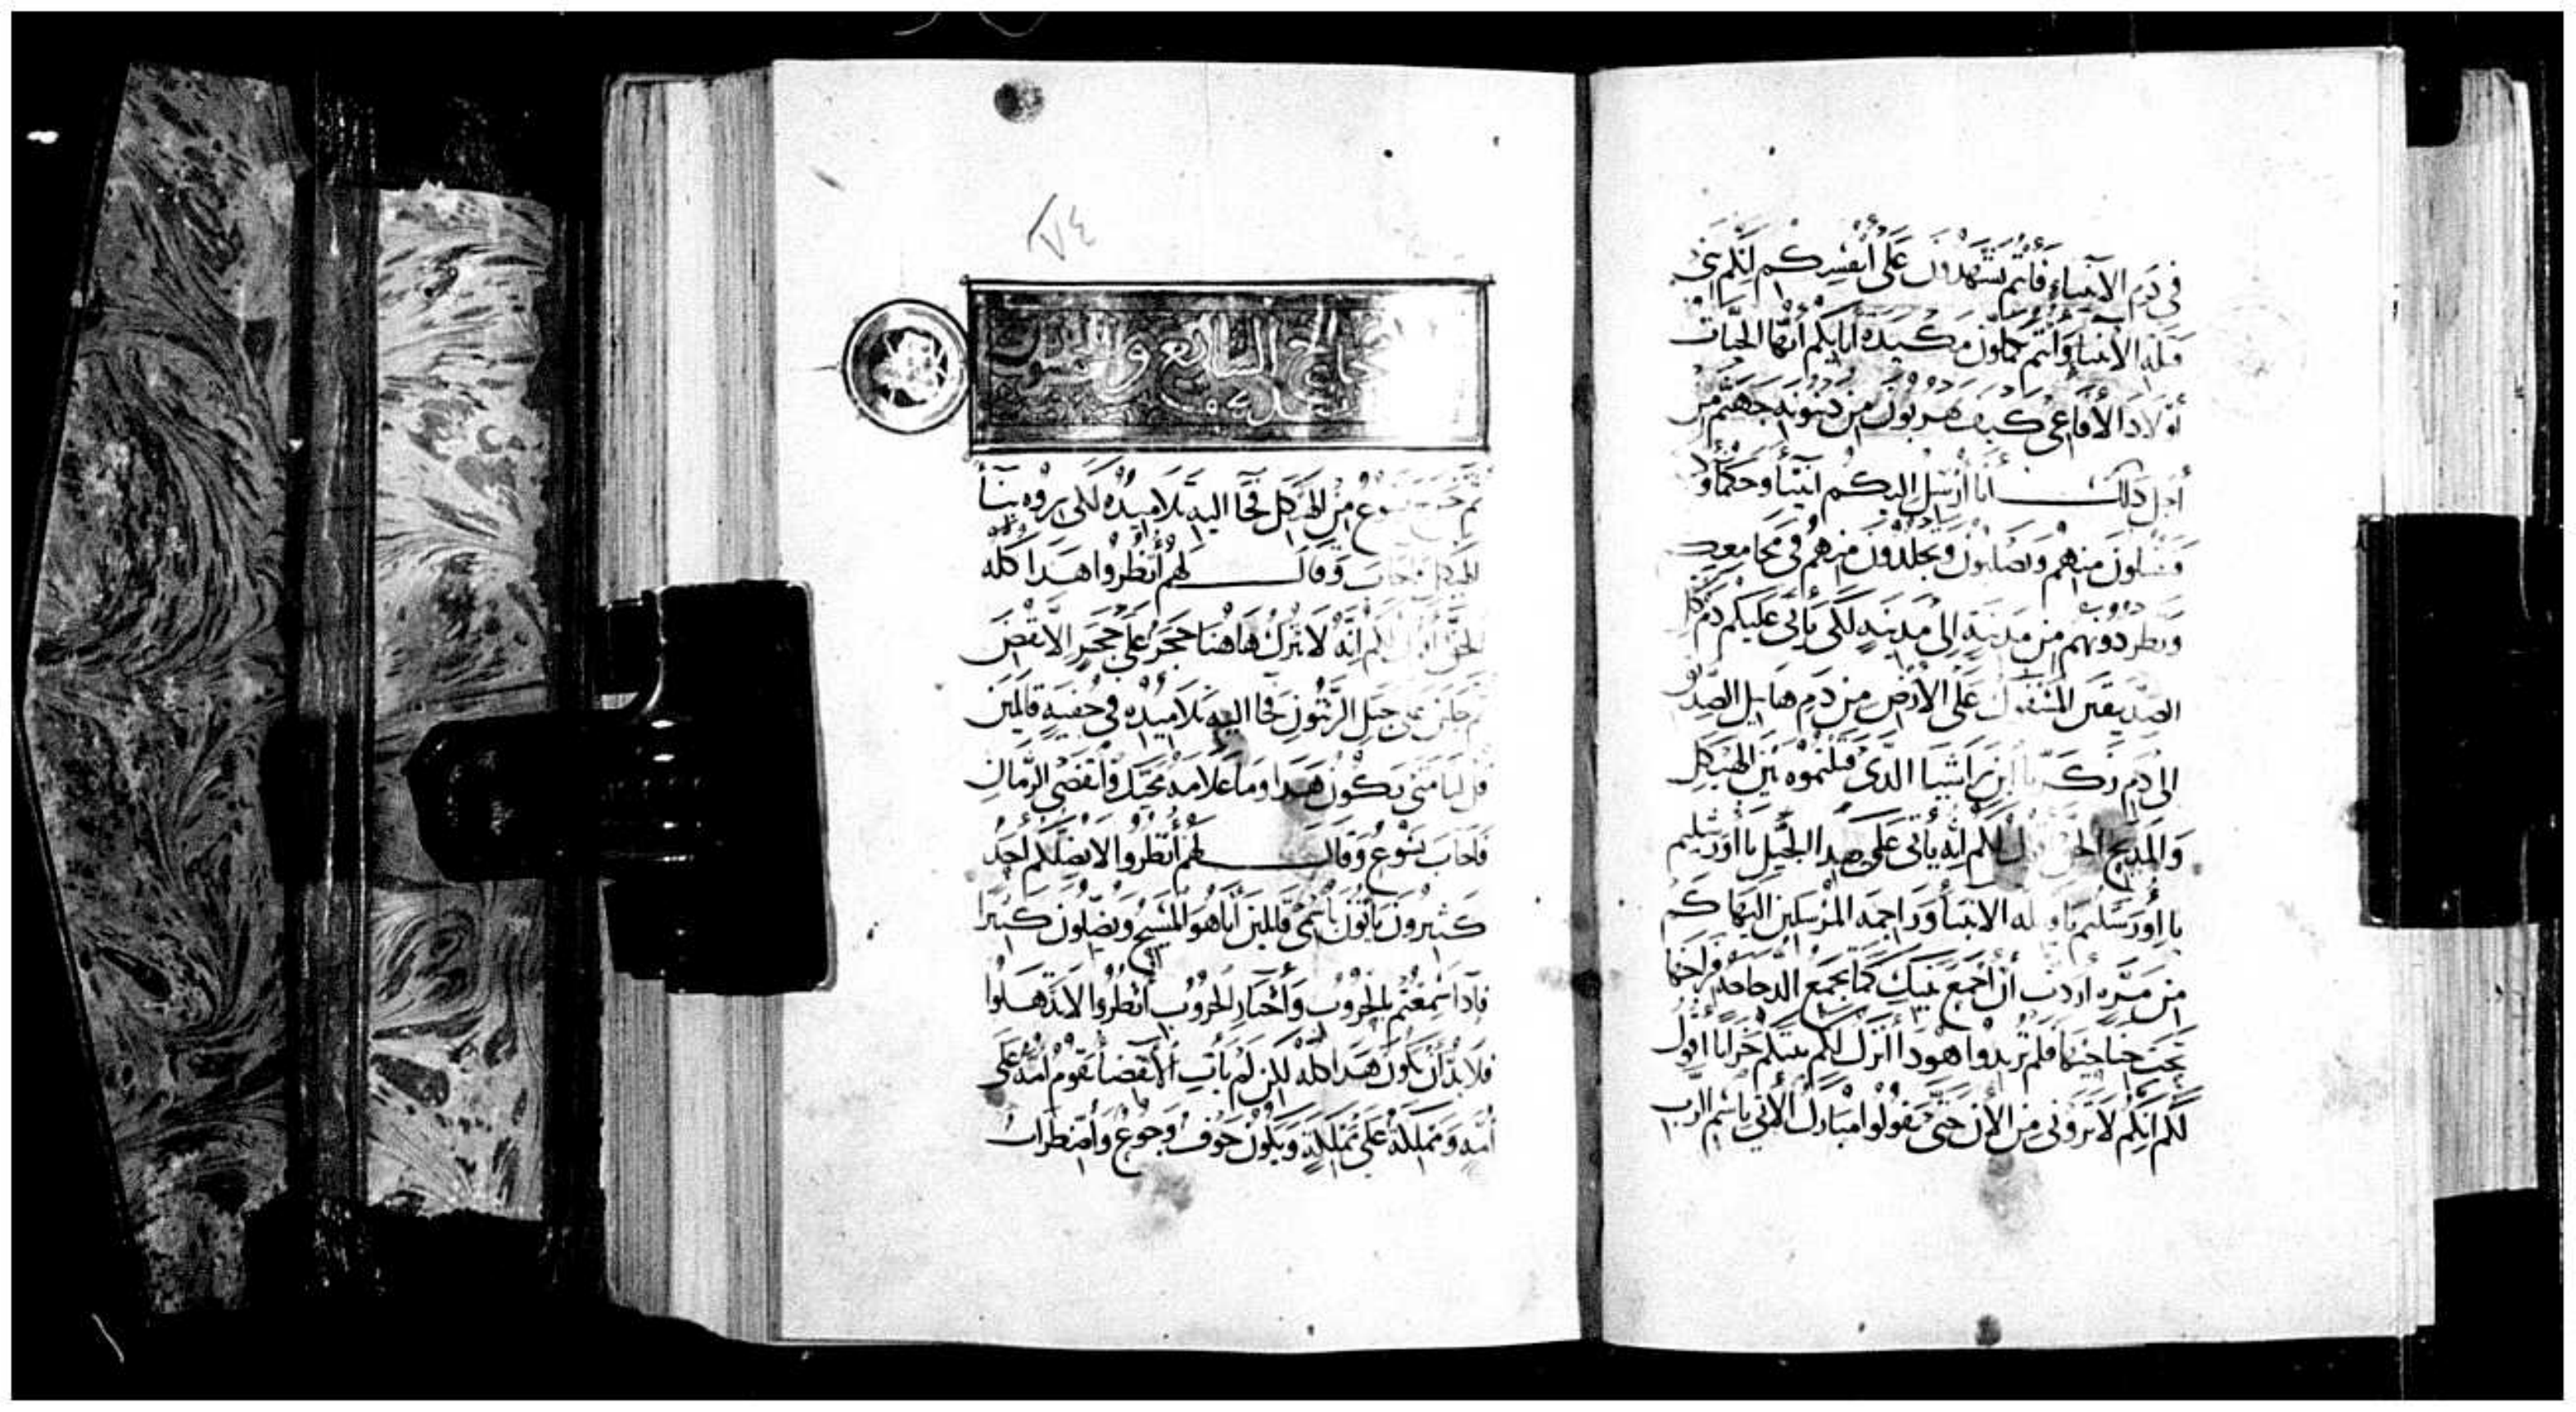 في دم الأنبياء فأنتم تشهدون على أنفسكم أنكم بني
قتلة الأنبياء وأنتم تكملون مكيدة آبايكم أيها الحيات
أولاد الأفاعي كيف تهربون من دينونة جهنم من
أجل ذلك أنا أرسل اليكم أنبيا وحكما و
فتقتلون منهم وتصلبون وتجلدون منهم في مجامعكم
وتطردونهم من مدينة إلى مدينة لكي يأتي عليكم دم
الصديقين المسفوك على الأرض من دم هابيل الصديق
إلى دم زكريا ابن براشيا الذي قتلتموه بين الهيكل
والمذبح الحق لكم إنه يأتي على هذا الجيل يا أورشليم
يا أورشليم يا قاتلة الانبيا وراجمة المرسلين اليها كم
من مرة أردت أن أجمع بنيك كما تجمع الدجاجة فراخها
تحت جناحيها فلم تريدوا هوذا أترك لكم بيتكم خرابا أقول
لكم إنكم لا تروني من الآن حتى تقولوا مبارك الآتي باسم الرب
٧٤
السابع والخمسون
ثم خرج يسوع من الهيكل فجا اليه تلاميذه لكي يروه بنا
الهيكل فاجاب وقال لهم أنظروا هذا كله
الحق أقول لكم إنه لا يترك هاهنا حجر على حجر الا نقض
ثم جلس على جبل الزيتون فجا اليه تلاميذه في خفية قايلين
قل لنا متى يكون هذا وما علامة مجيك وانقضى الزمان
فاجاب يسوع وقال لهم أنظروا لا يضلكم أحد
كثيرون يأتون باسمي قايلين أنا هو المسيح ويضلون كثيرا
فاذا سمعتم بالحروب وأخبار الحروب أنظروا لا تذهلوا
فلا بد أن يكون هذا كله لكن لم يأت الانقضا تقوم أمة على
أمة ومملكة على مملكة ويكون خوف وجوع وأضطراب